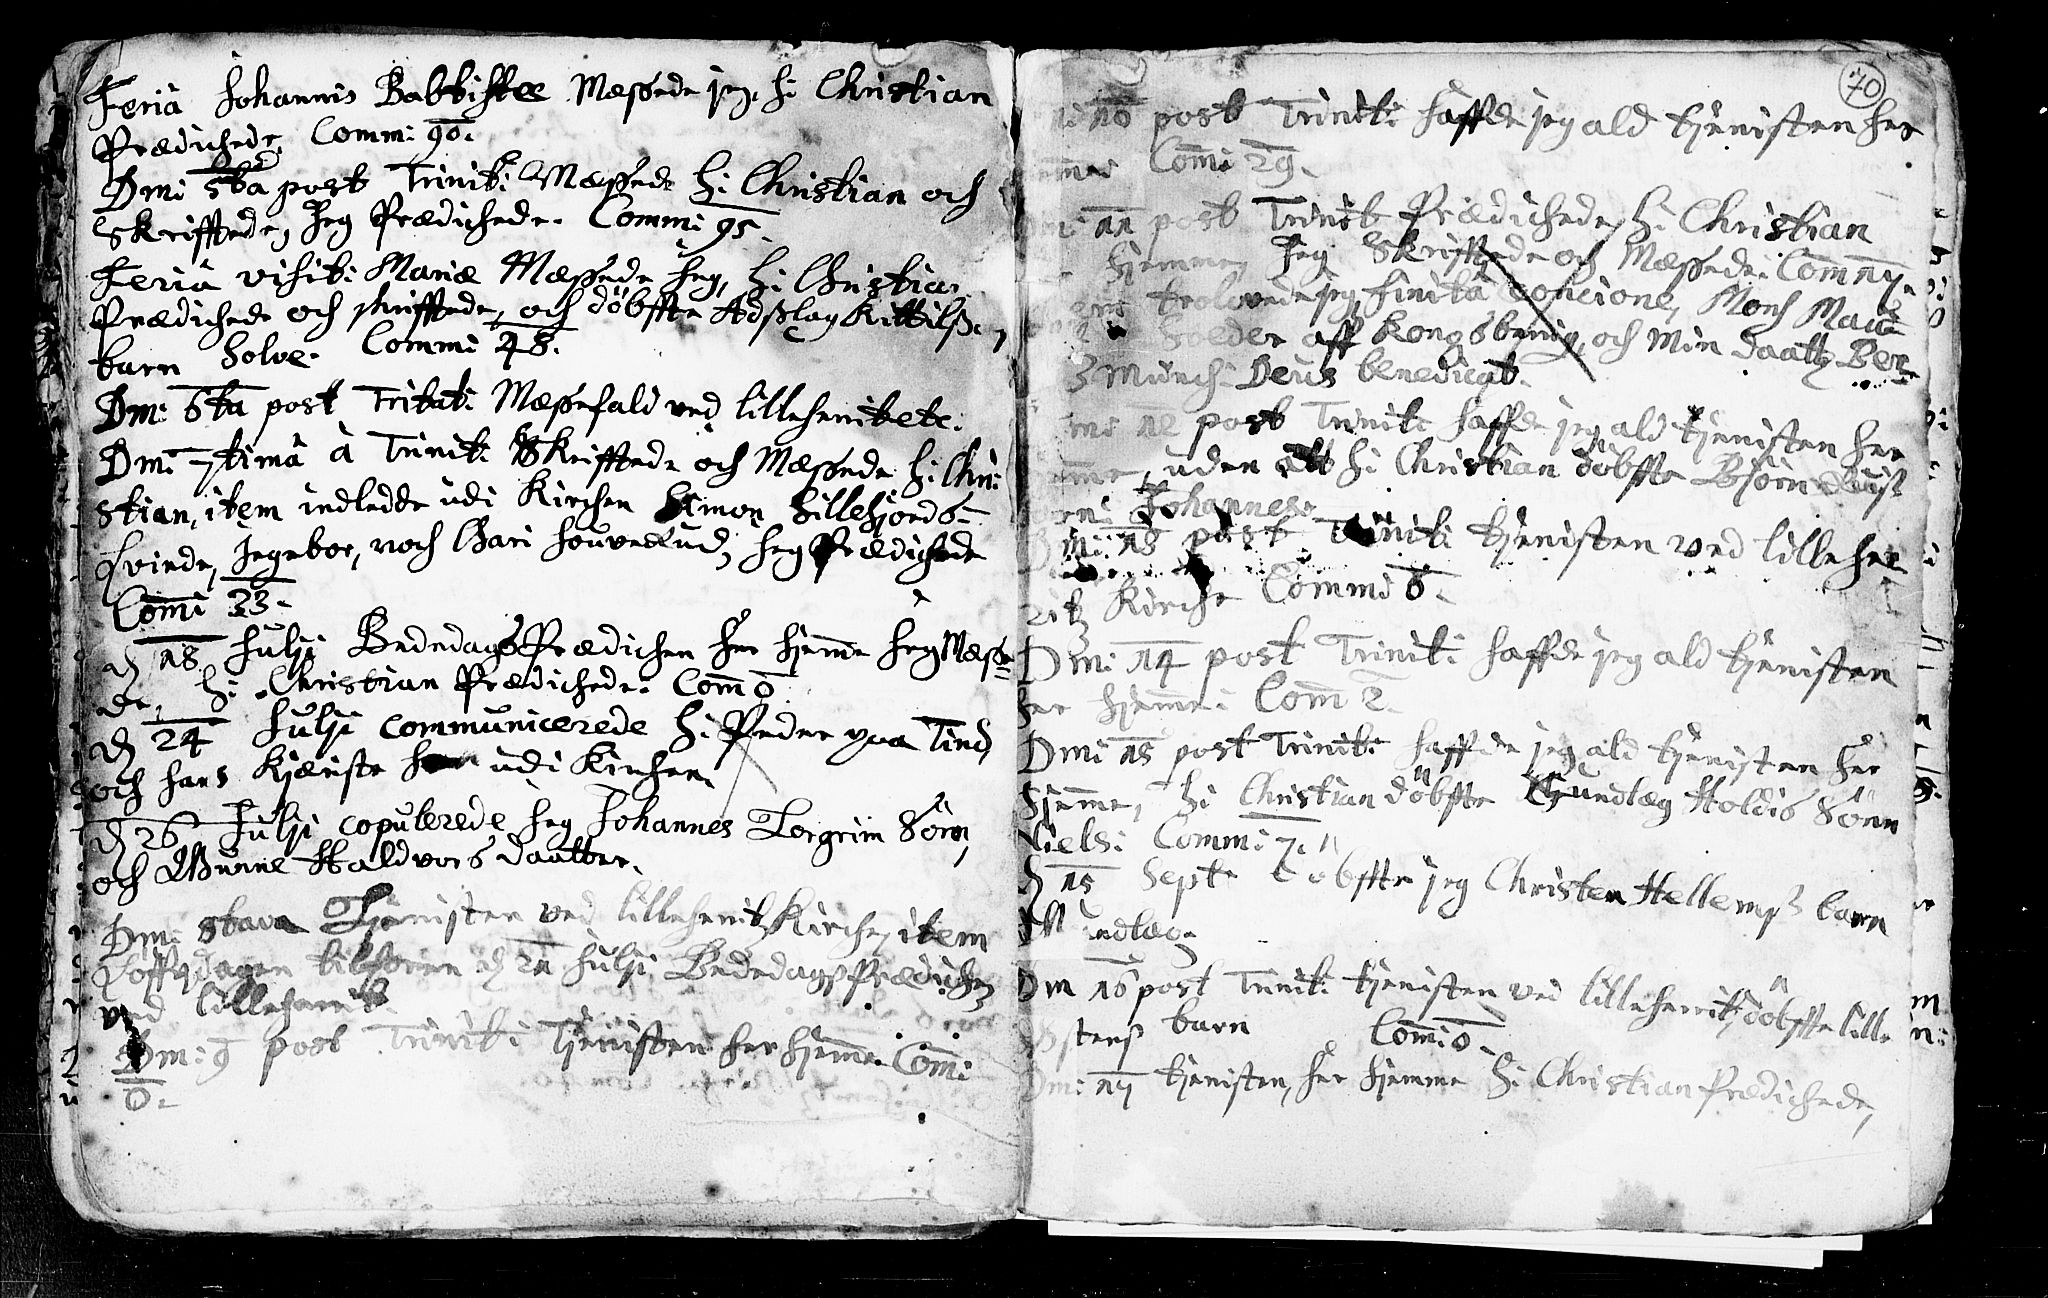 Feria Johannis Babtistæ Messede jeg, H: Christian
Prædichede, Comm: 90.
Dmi 5ta post Trinit: Messede H: Christian och
Skrifftede, Jeg Prædichede. Comm: 95.
Feria visit: Mariæ Messede Jeg, H: Christian
Prædichede och skrifftede, och döbffte Adßlag Kittilß
barn Solve. Comm: 48.
Dm: 6ta post Tritat: Messefald ved lilleheritet:
Dmi 7tima à Trinit: Skrifftede och Messede H: Chri
stian, item indledde udi Kirchen Simon Lillefjords
Qvinde, Ingebor, noch Gari Jeg Prædichede
Comi 33.
d 18 Julji Bededags Prædichen her hjemme Jeg Messe
de, H: Christian Prædichede. Com 0
d 24 Julji communicerede H: Peder paa Tind
och hans Kjæriste udi Kirchen.
d 26 Julji copulerede Jeg Johannes Torgrim Sörn,
och Gunne Haldvors daatter.
Dm: 8tava Tjenisten ved lilleherit Kirche, item
Loffverdagen tilforn d 21 Julji Bededags Prædichen
ved lilleherit.
Dm: 9 post Trinit: Tjenisten her hjemme. Com:
0.
70
10 post Trinit: haffde jeg ald tjenisten her
Comi 29.
11 post Trinit Prædichede H: Christian
hjemme, Jeg Skrifftede och Messede: Com 17.
trolovede jeg finita Concione, Mons
aff Kongsberrig, och Min daatter Ber
Munch: Deus benedicat.
12 post Trinit: haffde jeg ald tjenisten her
uden att H: Christian döbffte Björn
Johannes.
13 post Trinit: tjenisten ved lilleher
ritz Kirche Commi 6.
Dmi 14 post Trinit: haffde jeg ald tjenisten
her hjemme: Com 2.
Dmi 15 post Trinit: haffde jeg ald tjenisten her
hjemme, H: Christian döbffte Gundlæg Holdis Sönn
Niels: Commi 7.
d 15 Sept: döbffte jeg Christen Hellemß barn
Dm 16 post Trinit: tjenisten ved lilleherrit, döbffte lille
barn Com: 0.
Dm: 17 tjenisten, her hjemme H: Christian Prædichede,